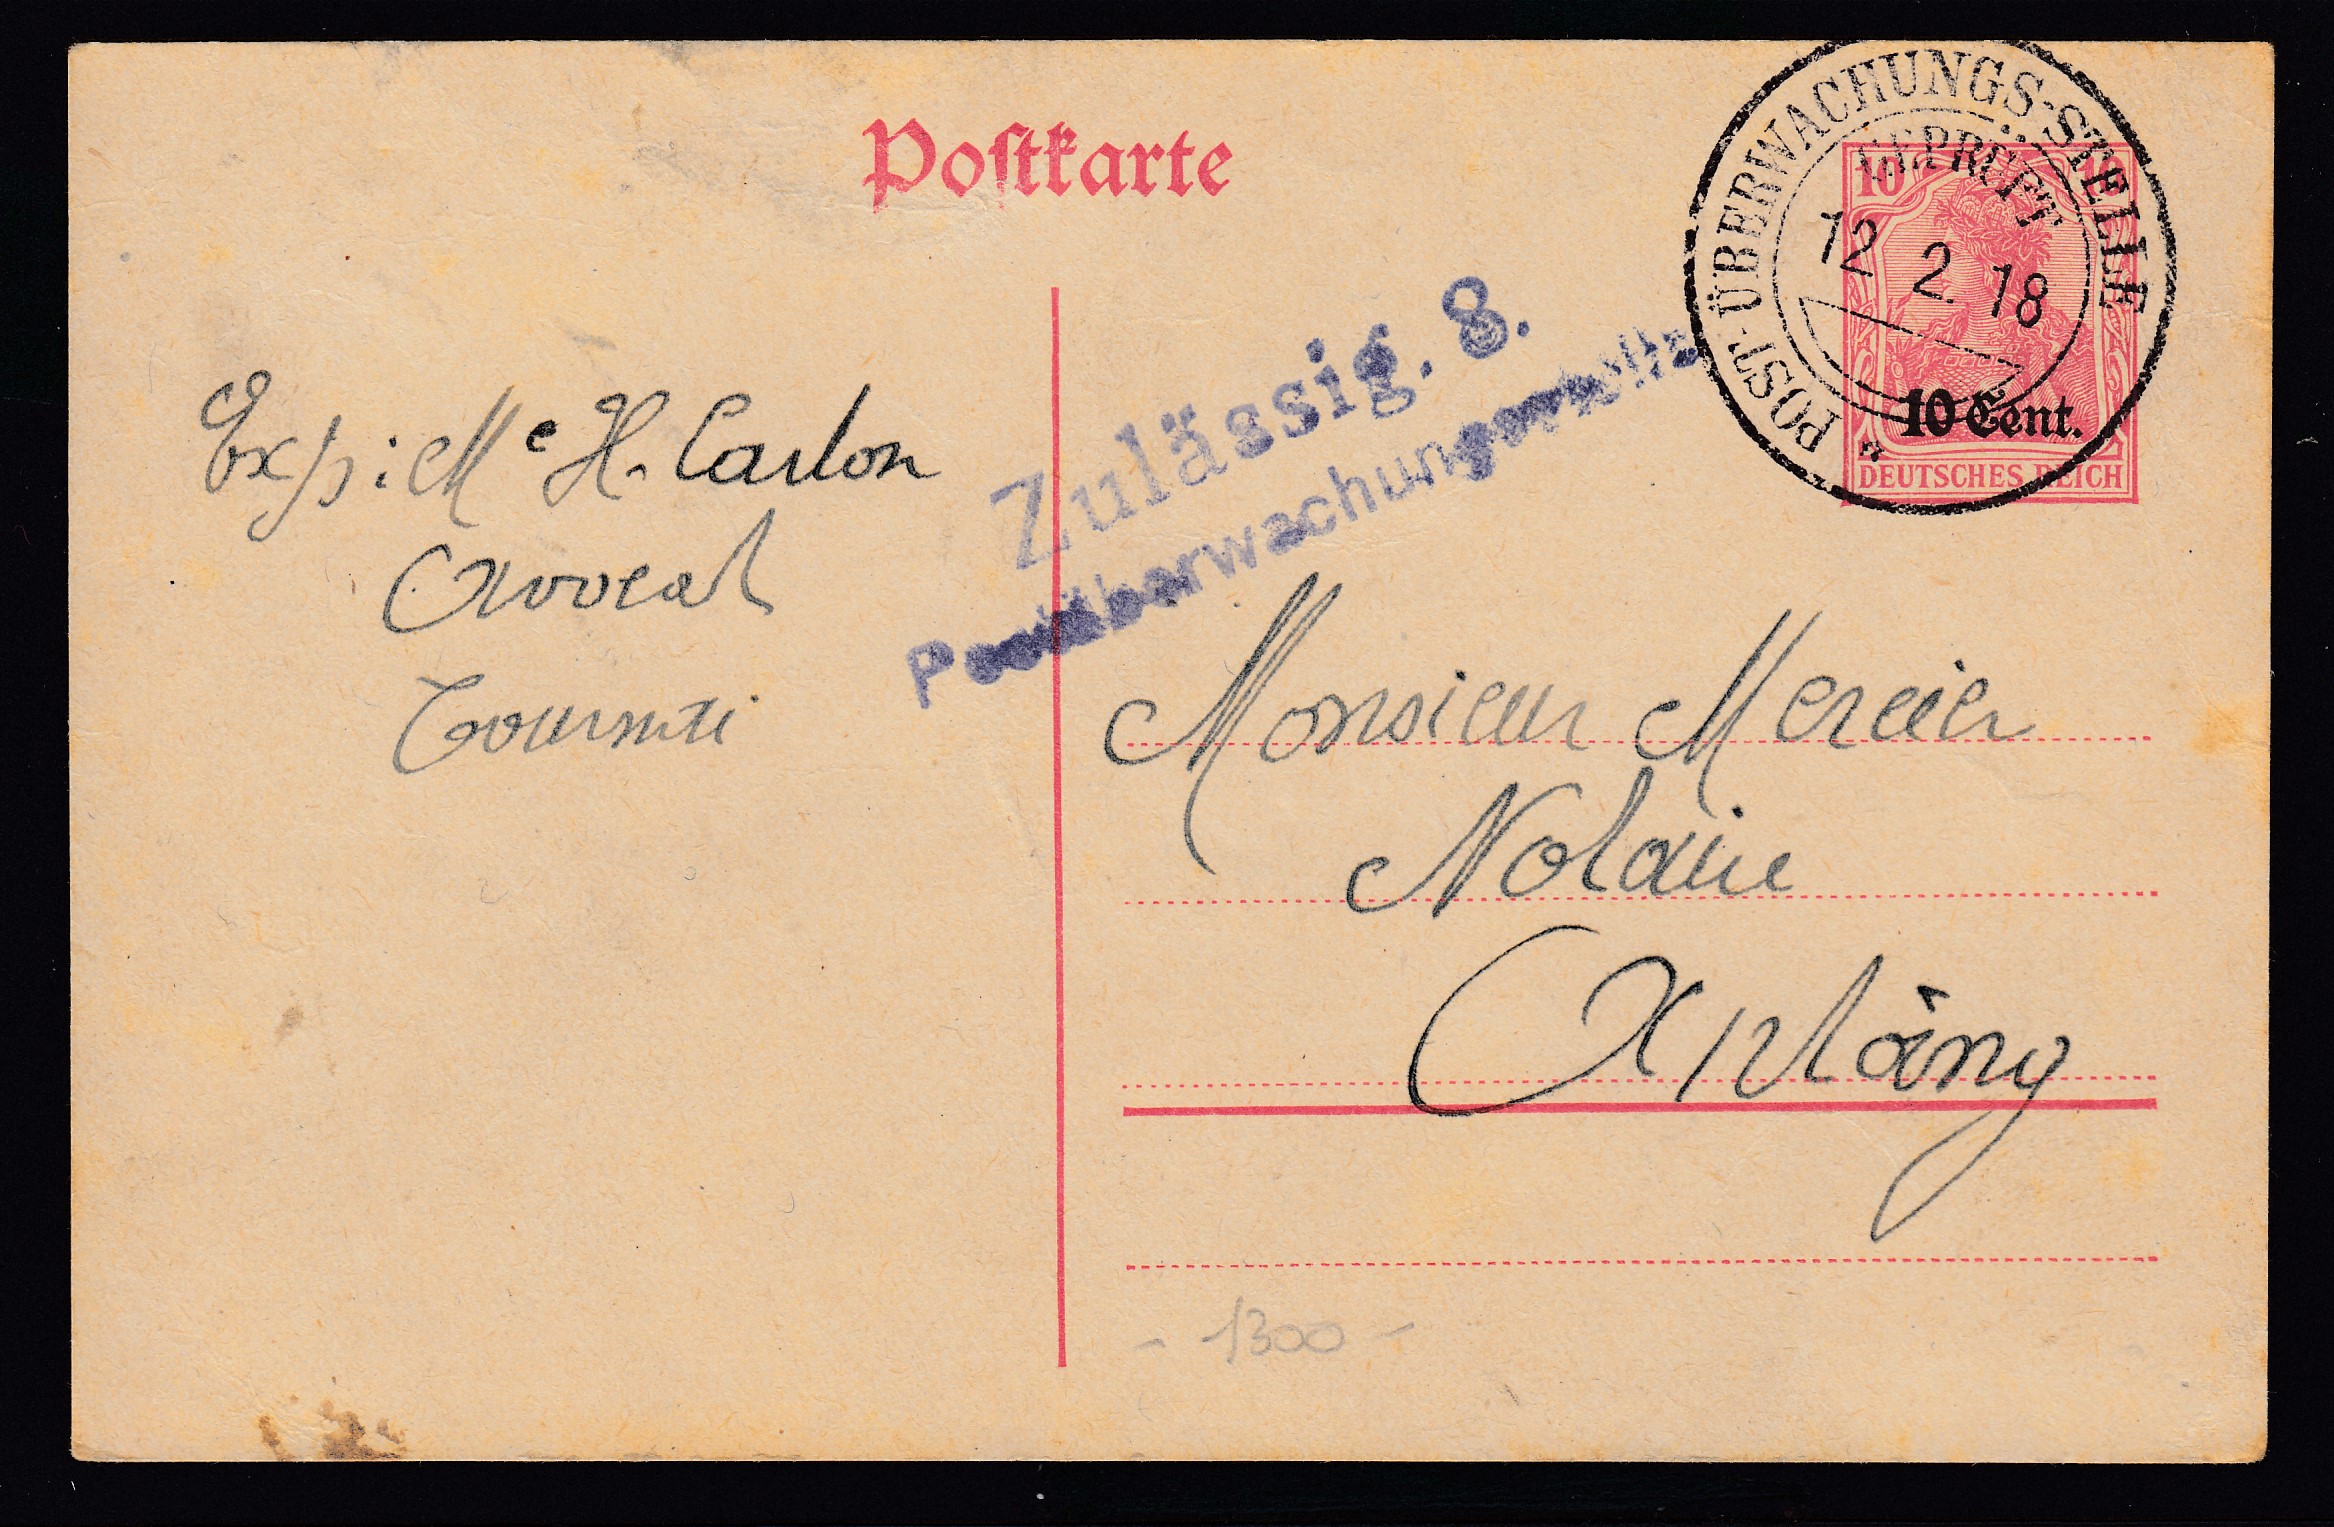 Postkarte
POST-ÜBERWACHUNGS-STELLE
GEPRÜFT
12 2. 18
10 10
10 Cent.
DEUTSCHES REICH
Zulässig. 8.
Postüberwachungsstelle
Exp: Me H. Carlon
Avocat
Tournai
Monsieur Mercier
Notaire
Antoing
- 1300 -